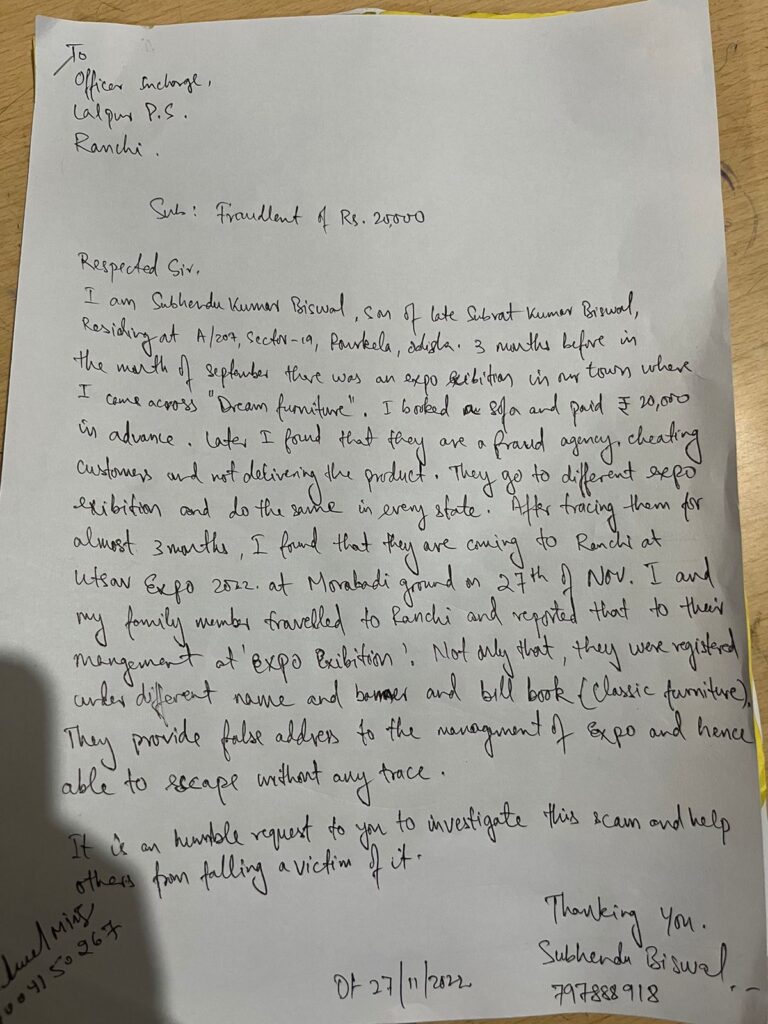 To
Officer Incharge,
Lalpur P.S.
Ranchi.
Sub: Fraudlent of Rs. 20,000
Respected Sir.
I am Subhendu Kumar Biswal, son of late Subrat Kumar Biswal,
Residing at A/207, Sector-19, Rourkela, Odisha. 3 months before in
the month of september there was an expo exibition in our town where
I came across "Dream furniture". I booked a sofa and paid ₹ 20,000
in advance. Later I found that they are a fraud agency, cheating
customers and not delivering the product. They go to different expo
exibition and do the same in every state. After tracing them for
almost 3 months, I found that they are coming to Ranchi at
Utsav Expo 2022. at Morabadi ground on 27th of Nov. I and
my family member travelled to Ranchi and reported that to their
mangement at 'Expo Exibition'. Not only that, they were registered
under different name and banner and bill book (Classic furniture).
They provide false address to the managment of Expo and hence
able to escape without any trace.
It is an humble request to you to investigate this scam and help
others from falling a victim of it.
Thanking You.
Subhendu Biswal
797888918
Dt 27/11/2022